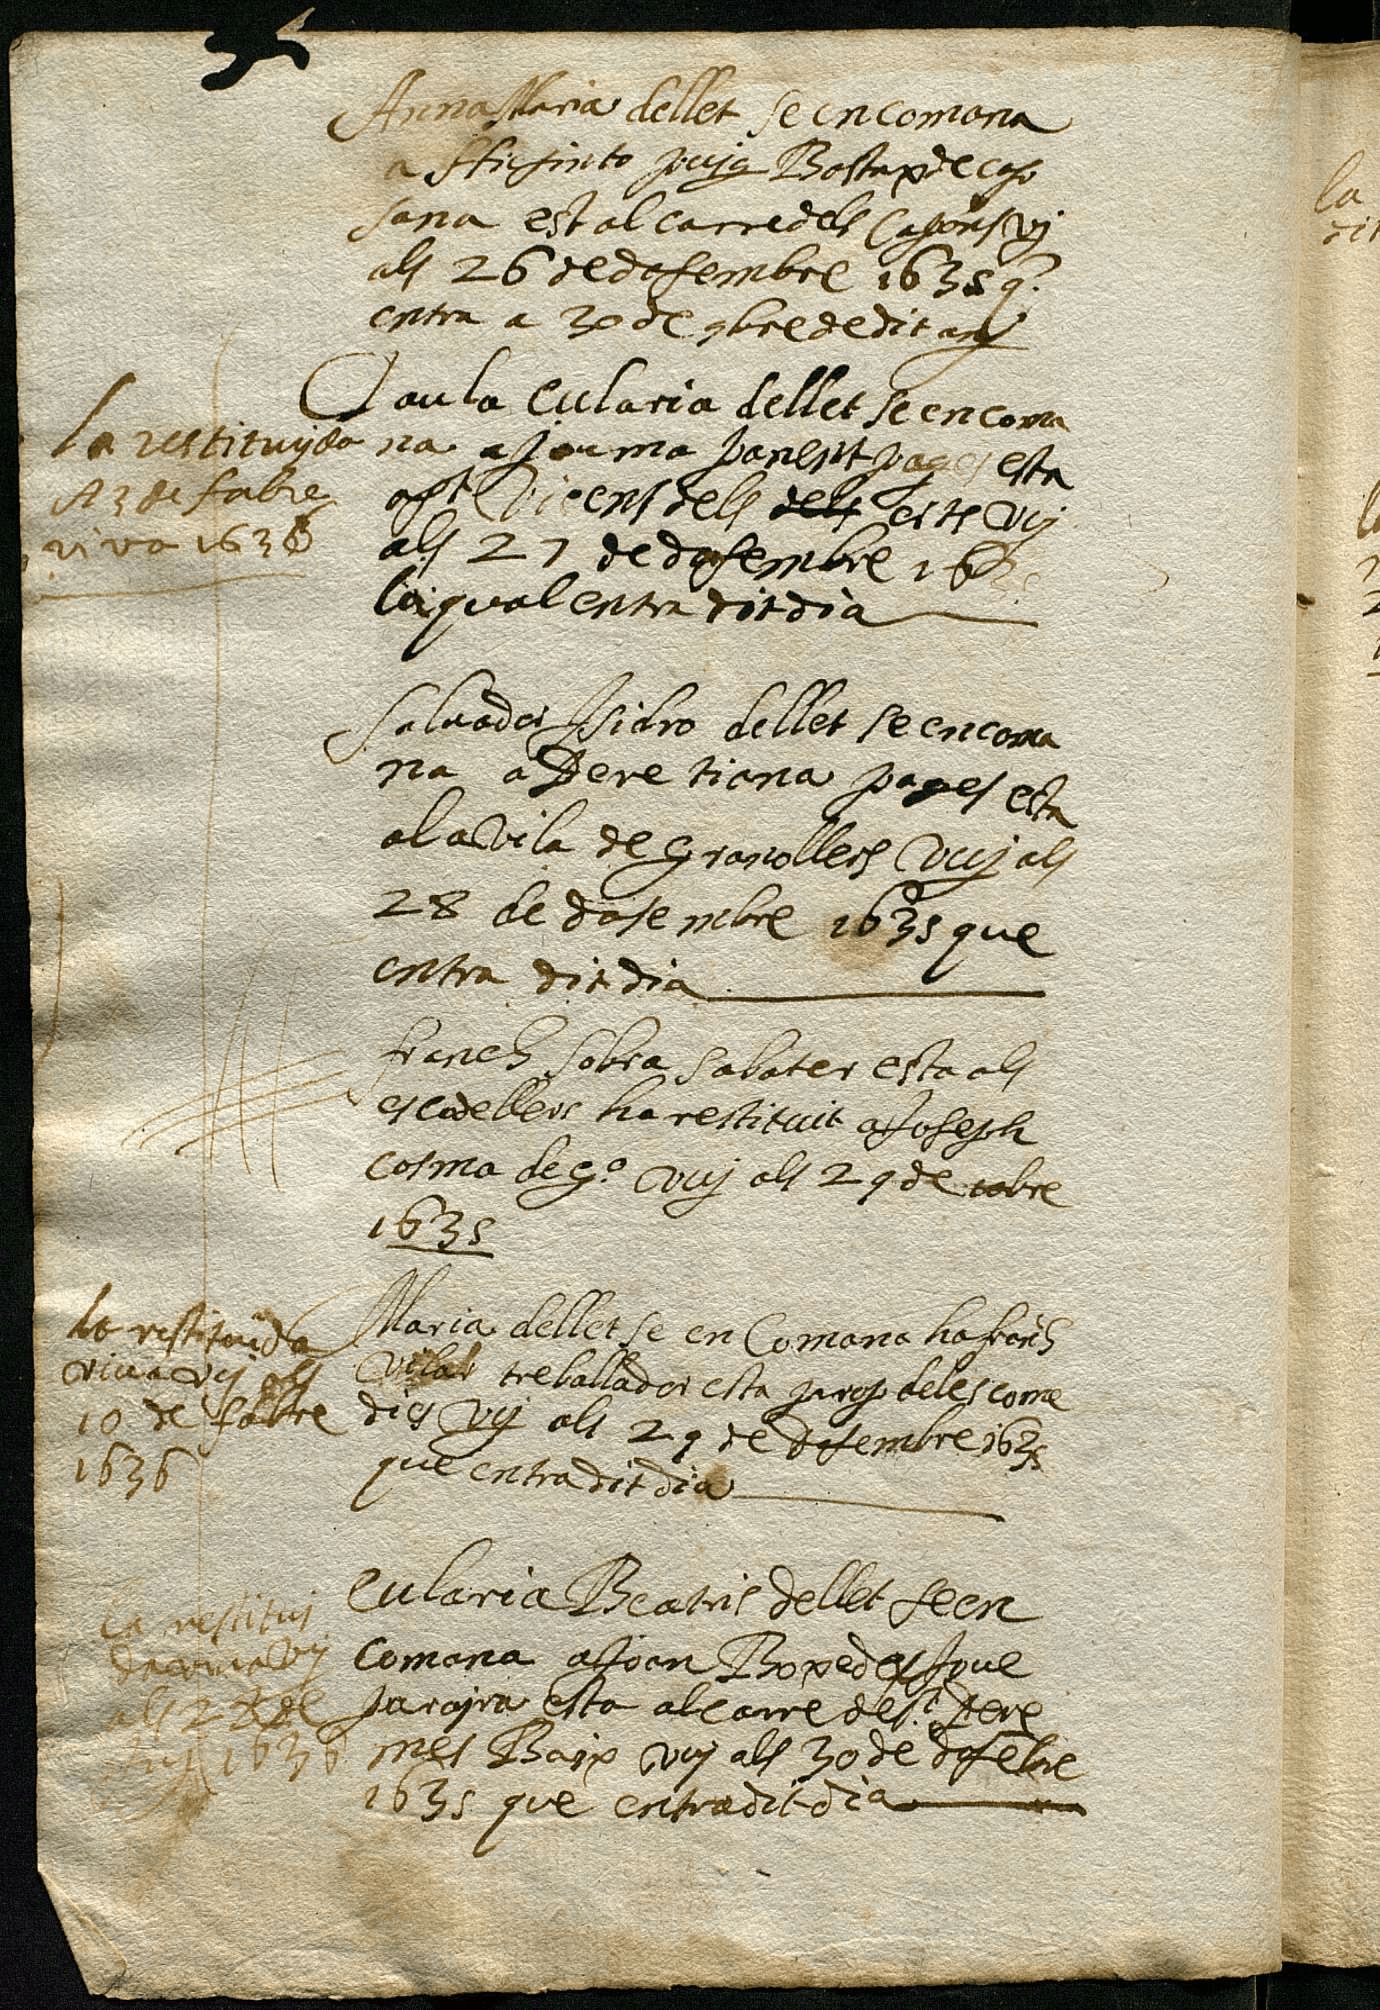 Anna Maria dellet se encomana
a Hiesinto puig Bastax de cap
sana est al carre dels Capons vij
als 26 de dasembre 1635 q.
entra a 30 de 9bre de dit any
Paula Eularia dellet se encoma
na a Jauma panest pages esta
a st Vicens dels dels vij
als 27 de dasembre 1635
la qual entra dit dia
la restituyda
a 3 de fabre
viva 1636
Saluador Isidro dellet se encoma
na a Pere tiana pages esta
a la vila de Granollers vuij als
28 de dasembre 1635 que
entra dit dia
franch sobra sabater esta als
escadellers ha restituit a Joseph
cosma de g.º vuij als 29 de xabre
1635
Maria dellet se en Comana ha franch
vilar treballador esta prop de les come
dies vij als 29 de dasembre 1635
que entra dit dia
la restituida
viua vij als
10 de fabre
1636
Eularia Beatris dellet se en
comana a Joan
paraira esta al carre de st. Pere
mes Baix vuij als 30 de dasebre
1635 que entra dit dia
la restitui
da viua vij
als 2 de
1636
la
dit